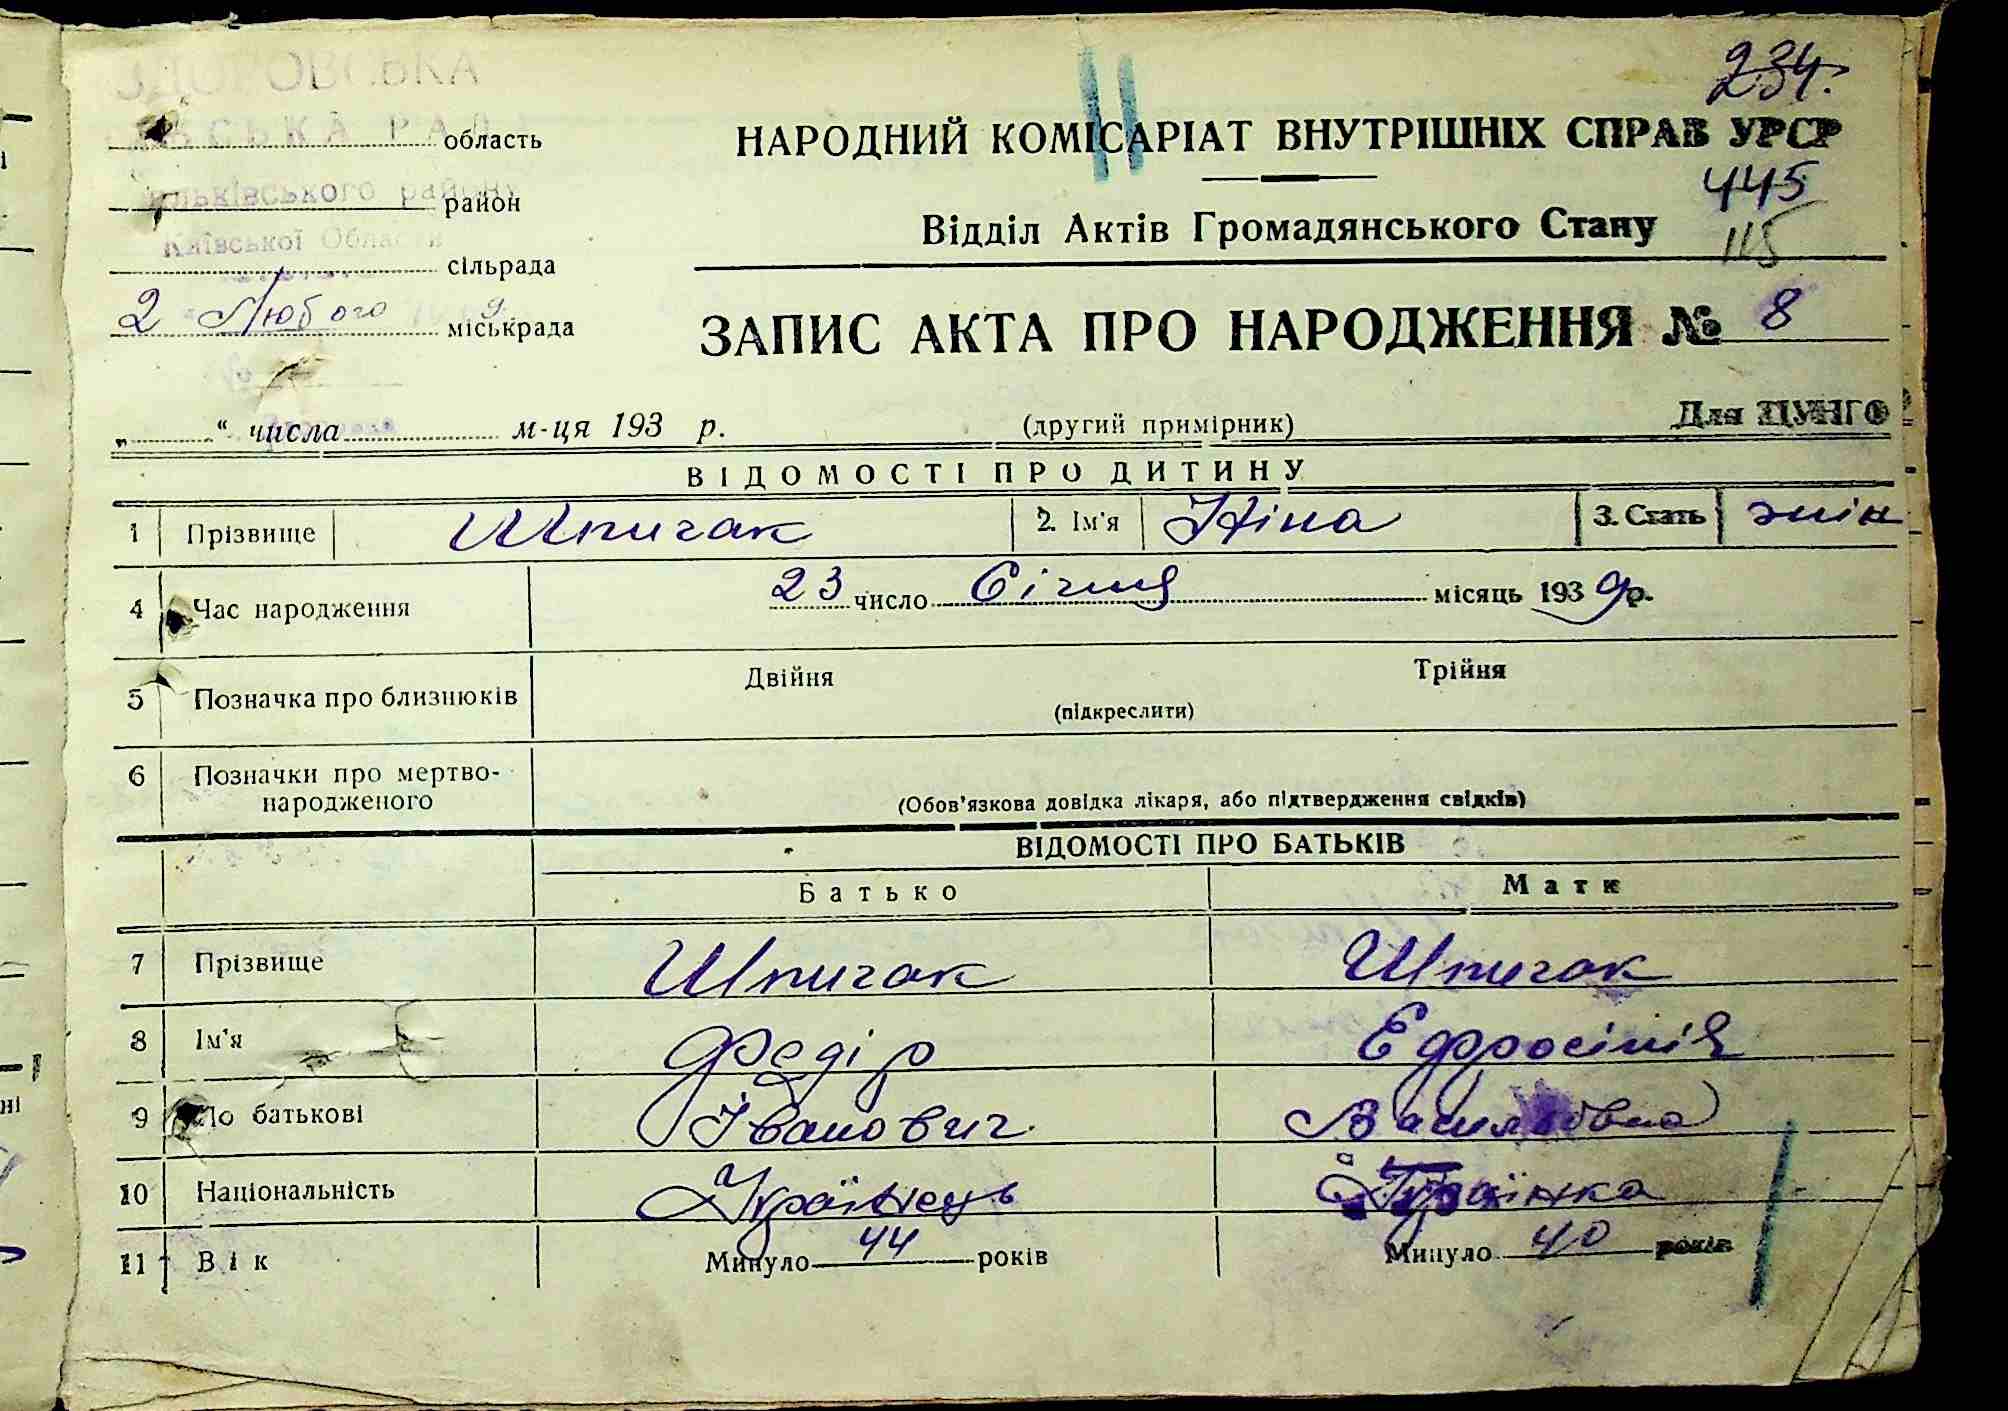 234.
ЗДОРОВСЬКА
область
НАРОДНИЙ КОМІСАРІАТ ВНУТРІШНІХ СПРАВ УРСР
445
району
район
Відділ Актів Громадянського Стану
115
Київської Області
сільрада
2 Лютого
міськрада
ЗАПИС АКТА ПРО НАРОДЖЕННЯ № 8
„ “ числа м-ця 193 р.
(другий примірник)
Для ЦУНГО
ВІДОМОСТІ ПРО ДИТИНУ
1 Прізвище Шпичак 2. Ім'я Ніна 3. Стать жін
4 Час народження 23 число Січня місяць 1939 р.
5 Позначка про близнюків Двійня Трійня
(підкреслити)
6 Позначки про мертво-
народженого (Обов'язкова довідка лікаря, або підтвердження свідків)
ВІДОМОСТІ ПРО БАТЬКІВ
Батько Мати
7 Прізвище Шпичак Шпичак
8 Ім'я Федір Ефросінія
9 По батькові Іванович Васильовна
10 Національність Українець Українка
11 Вік Минуло 44 років Минуло 40 років